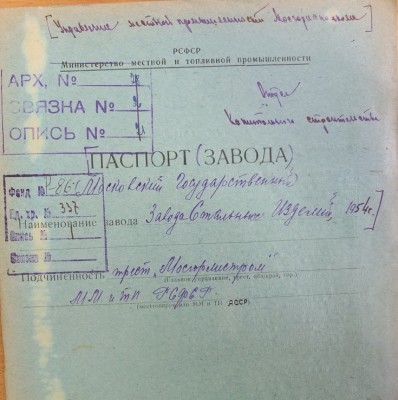 [Управление местной промышленности Мосгорисполкома]
РСФСР
Министерство местной и топливной промышленности
АРХ. №
СВЯЗКА №
ОПИСЬ №
Отдел
Капитального строительства
ПАСПОРТ (ЗАВОДА)
Фонд № Р-861
Ед. хр. № 337
Опись № 1
Связка №
Московский Государственный
Наименование завода Завод Стальных Изделий, 1954г.
Подчиненность трест „Мосгорметпром"
(Главное управление, трест, облпром, гор.)
ММ и ТП РСФСР.